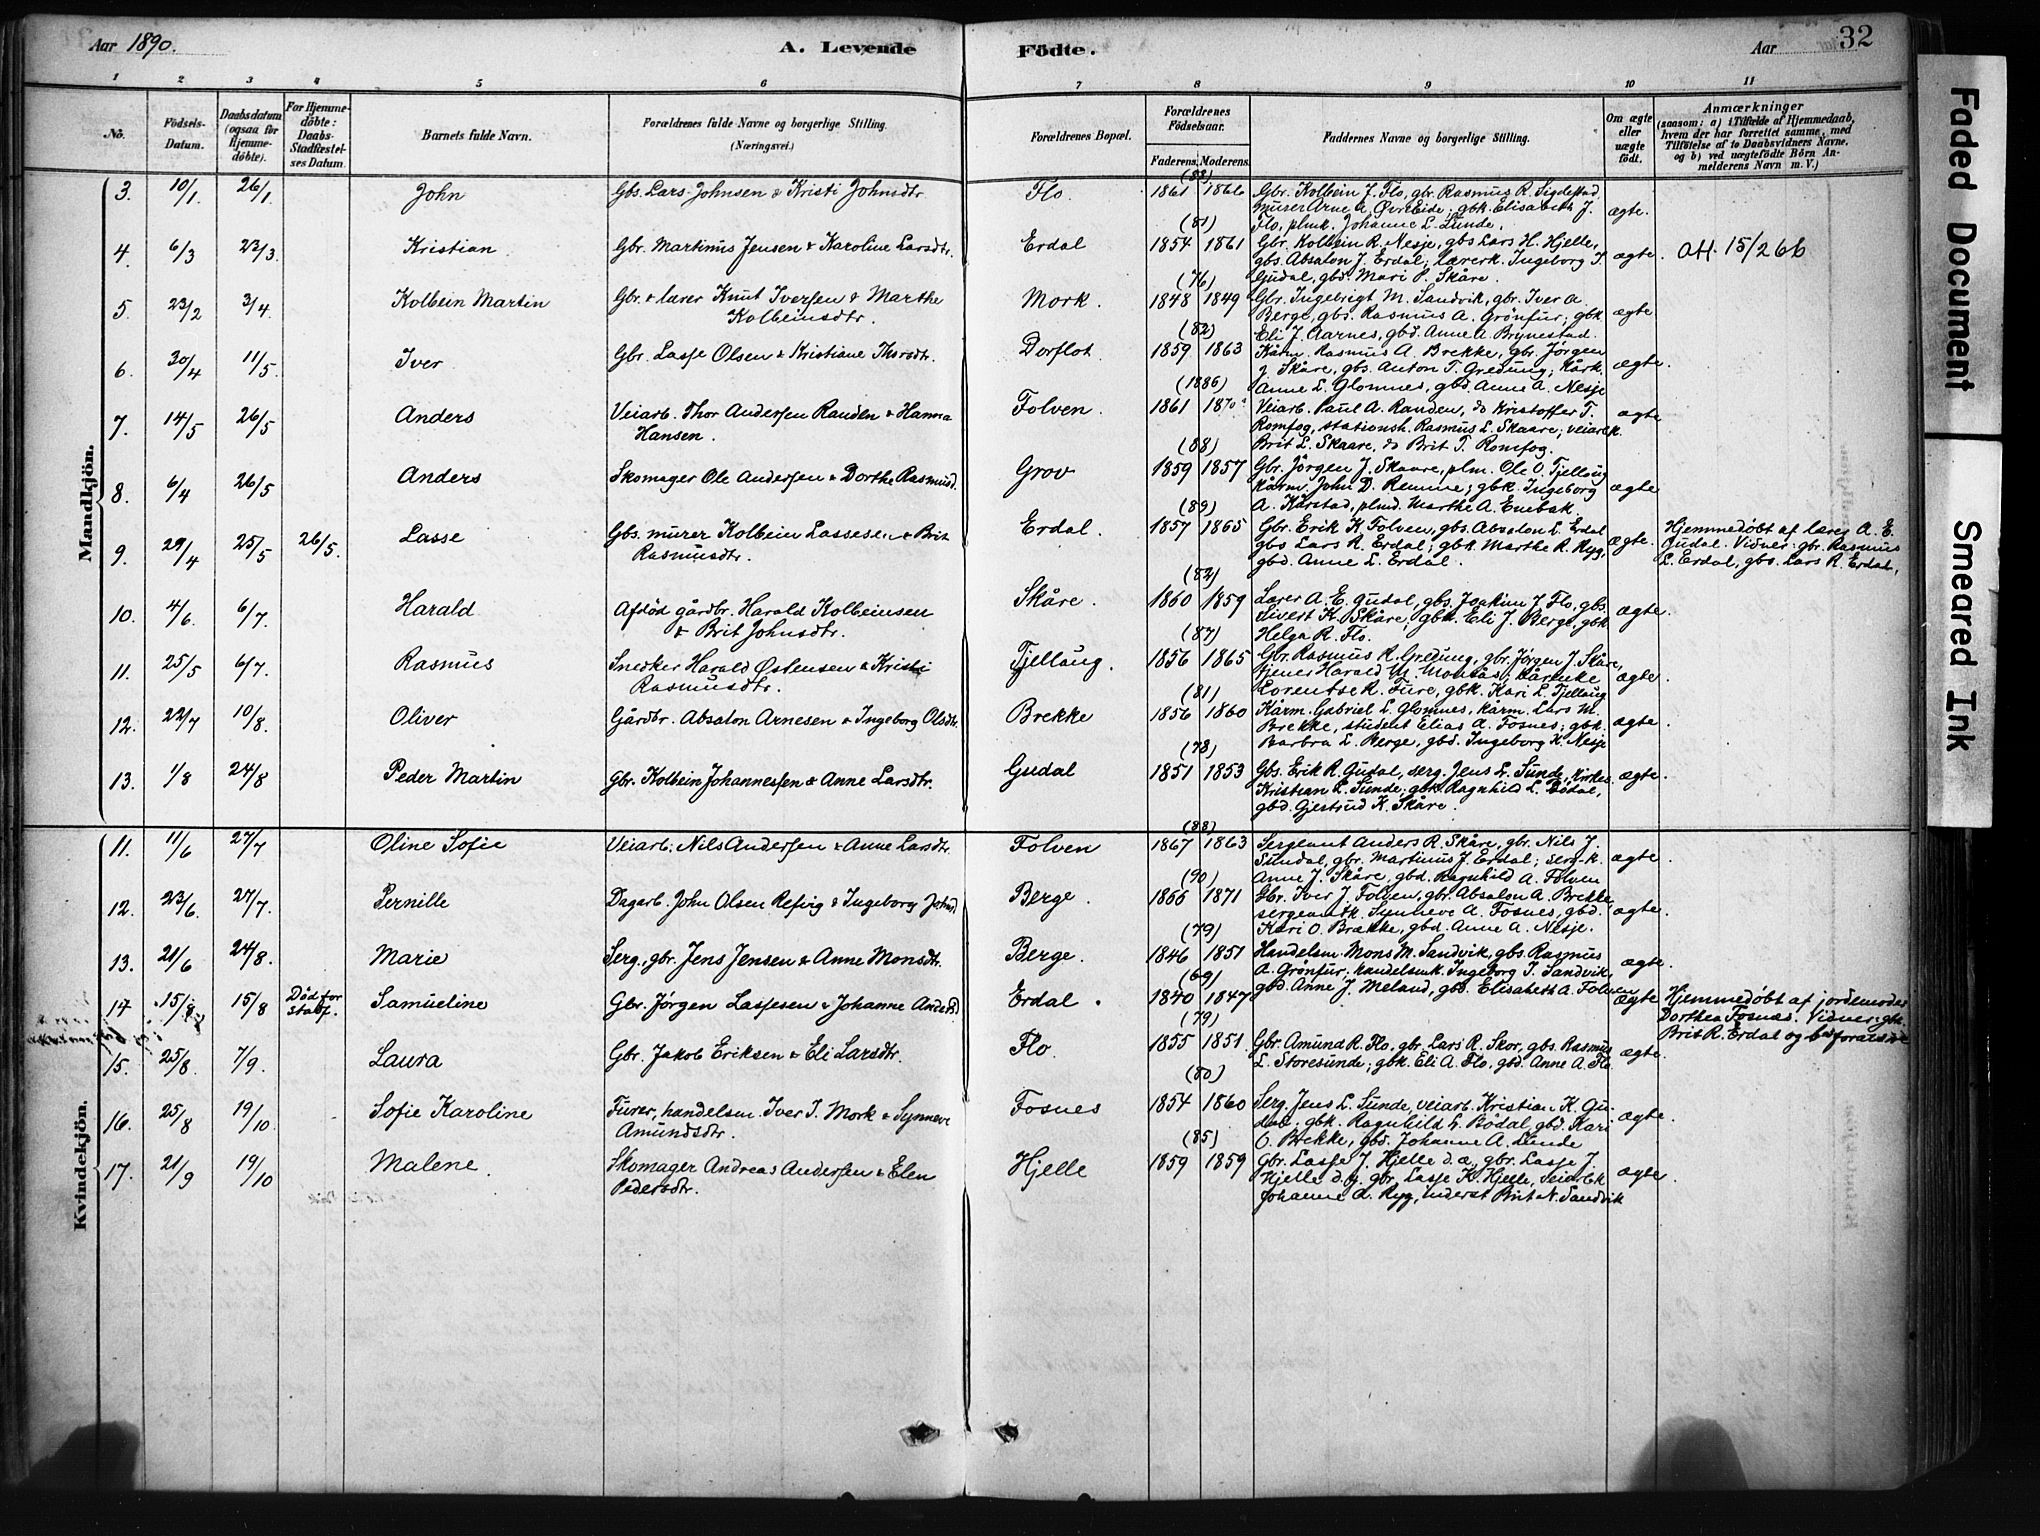 Aar 1890.
A. Levende Födte.
Aar
32
1 2 3 4 5 6 7 8 9 10 11
No.
Födsels-Datum.
Daabsdatum (ogsaa for Hjemme-döbte).
For Hjemme-döbte: Daabs-Stadfæstel-ses Datum.
Barnets fulde Navn.
Forældrenes fulde Navne og borgerlige Stilling.
(Næringsvei.)
Forældrenes Bopæl.
Forældrenes Födselsaar.
Faderens. Moderens.
Faddernes Navne og borgerlige Stilling.
Om ægte eller uægte födt.
Anmærkninger
(saasom: a) i Tilfælde af Hjemmedaab, hvem der har forrettet samme, med Tilföielse af to Daabsvidners Navne, og b) ved uægtefödte Börn Anmelderens Navn m. V.)
Mandkjön.
3. 10/1. 26/1. John Gbs. Lars Johnsen & Kristi Johnsdtr. Flo. (88) 1861 1866 Gbr. Kolbein J. Flo, gbr. Rasmus R. Sigdestad,
murer Arne A. Øvreeide; gbk. Elisabeth J. ægte.
Flo, plmk. Johanne L. Sunde.
4. 6/3 23/3. Kristian Gbr. Martinus Jensen & Karoline Larsdtr. Erdal (81) 1854 1861 Gbr. Kolbein R. Nesje, gbs Lars H. Hjelle,
gbs. Absalon J. Erdal; lærerk. Ingeborg J. ægte. OH. 15/2 66
Gudal, gbd. Mari P. Skåre.
5. 23/2 3/4. Kolbein Martin Gbr. & lærer Knut Iversen & Marthe
Kolbeinsdtr. Mork. (76) 1848 1849 Gbr. Ingebrigt M. Sandvik, gbr. Iver A.
Berge, gbs. Rasmus A. Grönfur; gbk ægte
Eli J. Aarnes, gbd. Anne A. Brynestad.
6. 30/4 11/5. Iver Gbr. Lasse Olsen & Kristiane Thorsdtr. Dorflot. (82) 1859 1863 Kårm. Rasmus A. Brekke, gbr. Jörgen
J. Skåre, gbs. Anton T. Gredung; kårk. ægte.
Anne L. Glomnes, gbd Anne A. Nesje
7. 14/5 26/5 Anders Veiarb. Thor Andersen Randen & Hanna
Hansen. Folven. (1886) 1861 1870 Veiarb. Paul A. Randen, do Kristoffer T. ægte
Romfog, stationsh. Rasmus L. Skaare; veiarbk.
Brit L. Skaare, do Brit T. Romfog.
8. 6/4 26/5 Anders Skomager Ole Andersen & Dorthe Rasmusd. Grov (88) 1859 1857 Gbr. Jörgen J. Skaare, plm. Ole O. Tjellaug
kårm. John D. Remme; gbk Ingeborg ægte
A. Kårstad, plmd. Marthe A. Enebak.
9. 29/4 25/5 26/5. Lasse Gbs. murer Kolbein Lassesen & Brit
Rasmusdtr. Erdal. (89) 1857 1865 Gbr. Erik K. Folven, gbs. Absalon L. Erdal
gbs Lars R. Erdal; gbk. Marthe R. Ryg, ægte.
gbd. Anne L. Erdal.
Hjemmedøbt af lærer A. E.
Gudal. Vidner: gbr. Rasmus
L. Erdal, gbs. Lars R. Erdal.
10. 4/6. 6/7. Harald Afdöd gårdbr. Harald Kolbeinsen
& Brit Johnsdtr. Skåre. (82) 1860 1859 Lærer A. E. Gudal, gbs. Joakim J. Flo, gbs.
Sivert K. Skåre; gbk Eli J. Berge, gbk ægte.
Helga R. Flo.
11. 25/5 6/7. Rasmus Snedker Harald Østensen & Kristi
Rasmusdtr. Tjellaug. (87) 1856 1865 Gbr. Rasmus R. Gredung, gbr. Jørgen J. Skåre,
tjener Harald M. Montås, kårenke ægte.
Lorentse R. Fure, gbk. Kari L. Tjellaug
12. 22/7 10/8. Oliver Gårdbr. Absalon Arnesen & Ingeborg Olsdtr. Brekke (81) 1856 1860 Kårm. Gabriel L. Glomnes, kårm. Lars M.
Brekke, student Elias A. Fosnes; gbk. ægte.
Barbra L. Berge, gbd. Ingeborg K. Nesje
13. 1/8 24/8 Peder Martin Gbr. Kolbein Johannessen & Anne Larsdtr. Gudal (78) 1851 1853 Gbs. Erik R. Gudal, serg. Jens L. Sunde, ægte.
Kristian L. Sunde; gbk. Ragnhild L. Bödal,
gbd. Gjertrud K. Skåre.
Kvindekjön.
11. 11/6 27/7 Oline Sofie Veiarb. Nils Andersen & Anne Larsdtr. Folven (88) 1867 1863 Sergeant Anders R. Skåre, gbr. Nils J.
Sundal, gbr. Martinus J. Erdal; serg.k. ægte.
Anne J. Skåre, gbd. Ragnhild A. Folven
12. 23/6. 27/7. Pernille Dagarb. John Olsen Refvig & Ingeborg Berge. (90) 1866 1871 Gbr. Iver J. Folven, gbr. Absalon A. Brekke,
sergeantk. Synneve A. Fosnes, gbd. ægte.
Kari O. Brekke, gbd. Anne A. Nesje.
13. 21/6 24/8. Marie Serg., gbr. Jens Jensen & Anne Monsdtr. Berge. (79) 1846 1851 Handelsm. Mons M. Sandvik, gbs. Rasmus
A. Grönfur; handelsmk. Ingeborg J. Sandvik, ægte.
gbd. Anne J. Meland, gbd. Elisabeth A. Folven
14. 15/8 15/8 Död for
stadf. Samueline Gbr. Jörgen Lassesen & Johanne Andersd Erdal. (69) 1840 1847 ægte Hjemmedøbt af jordemoder
Dorthea Fosnæs. Vidner: gbk.
Brit R. Erdal og
15. 25/8. 7/9. Laura Gbr. Jakob Eriksen & Eli Larsdtr. Flo. (79) 1855 1851. Gbr. Amund R. Flo, gbr. Lars R. Skor, gbs Rasmus
L. Storesunde; gbk. Eli A. Flo, gbd. Anne A. Flo ægte.
16. 25/8 19/10 Sofie Karoline Furer, handelsm. Iver I. Mork & Synneve
Amundsdtr. Fosnes (80) 1854 1860 Serg. Jens L. Sunde, veiarb. Kristian K. Gu-
dal; gbk. Ragnhild L. Bödal, gbd. Kari ægte.
O. Brekke, gbd. Johanne A. Lunde
17. 21/9 19/10 Malene. Skomager Andreas Andersen & Elen
Pedersdtr. Hjelle (85) 1859 1859 Gbr. Lasse J. Hjelle d. æ, gbr. Lasse J.
Hjelle d. y. gbr, Lasse K. Hjelle, veiarbk ægte.
Johanne A. Ryg, inderst Brit N. Sandvik
Faded Document
Smeared Ink